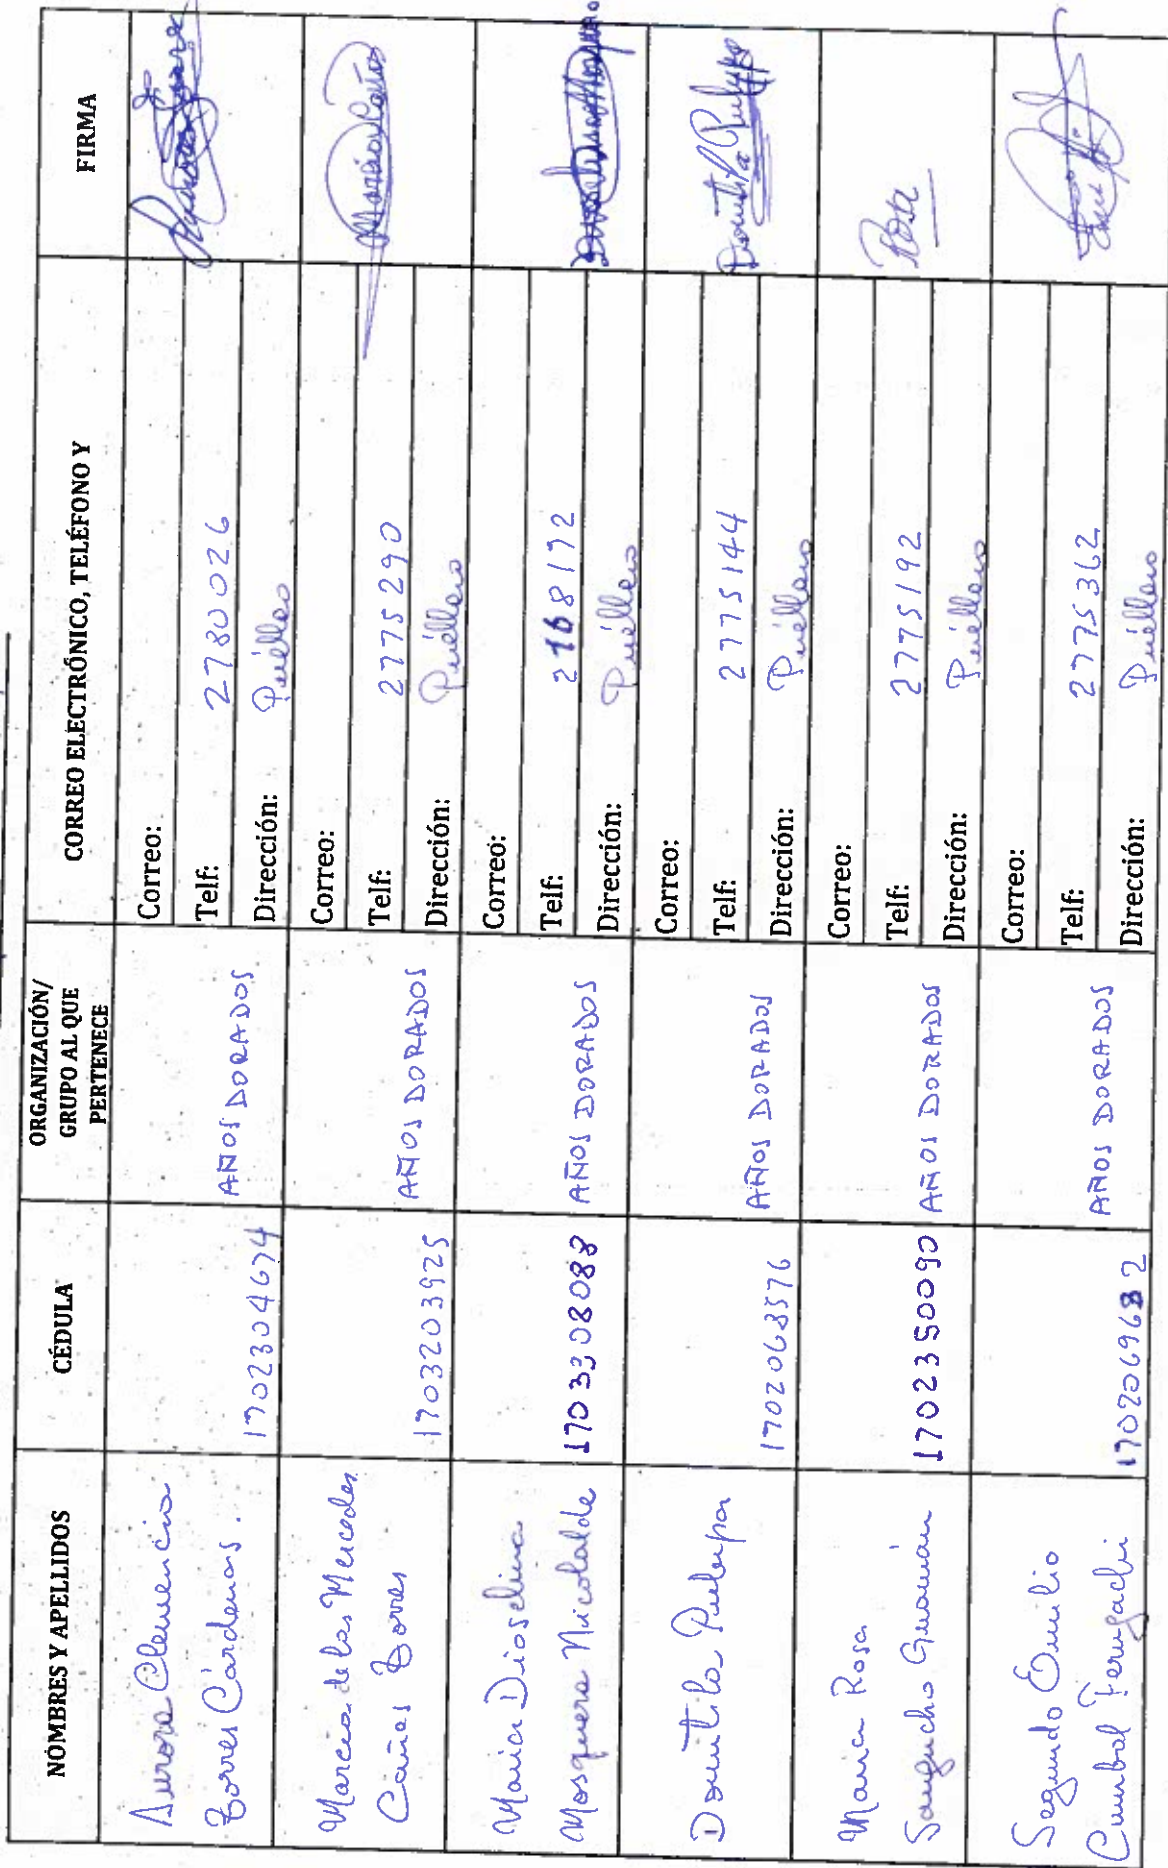 NOMBRES Y APELLIDOS
CÉDULA
ORGANIZACIÓN/
GRUPO AL QUE
PERTENECE
CORREO ELECTRÓNICO, TELÉFONO Y
FIRMA
Aurora Clemencia
Torres Cárdenas.
1702304674
AÑOS DORADOS
Correo:
Telf: 2780026
Dirección: Puéllaro
Marcia de las Mercedes
Cañas Torres
1703203925
AÑOS DORADOS
Correo:
Telf: 2775290
Dirección: Puéllaro
Maria Dioselina
Mosquera Nicolalde
1703308088
AÑOS DORADOS
Correo:
Telf: 2168192
Dirección: Puéllaro
Domitila Pulupa
1702063576
AÑOS DORADOS
Correo:
Telf: 2775144
Dirección: Puéllaro
Domitila Pulupa
Maria Rosa
Sangucho Guamán
1702350090
AÑOS DORADOS
Correo:
Telf: 2775192
Dirección: Puéllaro
Rosa
Segundo Emilio
Cumbal Ferugachi
1702069682
AÑOS DORADOS
Correo:
Telf: 2775362
Dirección: Puéllaro